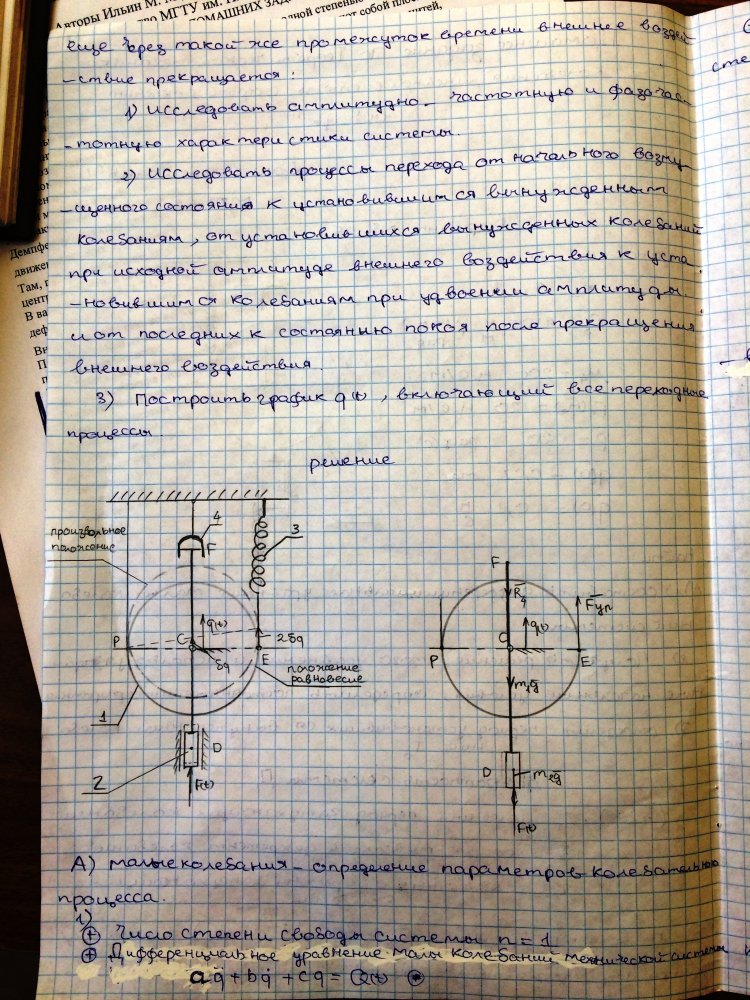 Авторы Ильин М.
МГТУ им.
ДОМАШНИХ ЗАД
еще чрез такой же промежуток времени внешнее воздей
-ствие прекращается:
1) исследовать амплитудно- частотную и фазачас
-тотную характеристики системы.
2) исследовать процессы перехода от начального возму
-щенного состояния к установившимся вынужденным
колебаниям, от установившихся вынужденных колебаний
при исходной амплитуде внешнего воздействия к уста
-новившимся колебаниям при удвоении амплитуды.
и от последних к состоянью покоя после прекращения
внешнего воздействия.
3) Построить график q(t), включающий все переходные
процессы.
решение
произвольное
положение
4
F
3
q(t)
P
C
2δq
δq
E
положение
равновесие
1
D
2
F(t)
F
R4
Fуп
q(t)
P
C
E
m1g
D
m2g
F(t)
А) малые колебания - определение параметров колебательного
процесса.
1)
⊕ число степени свободы системы n = 1
⊕ Дифференциальное уравнение малы колебаний механической системы
aq̈ + bq̇ + cq = Q(t)
Демпфе
движе
Там,
центр
В ва
деф